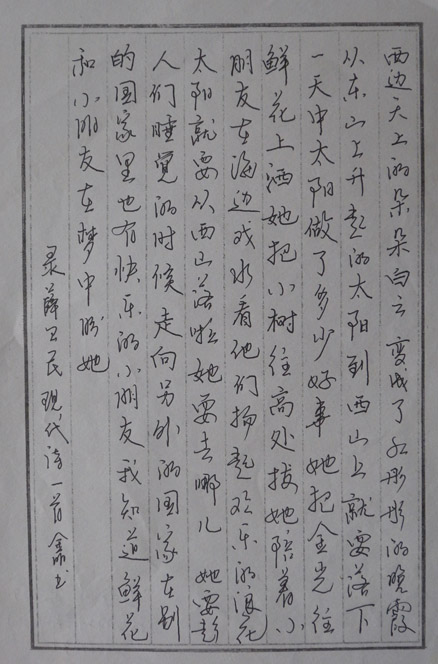 西边天上的朵朵白云变成了红彤彤的晚霞
从东山上升起的太阳到西山上就要落下
一天中太阳做了多少好事她把金光往
鲜花上洒她把小树往高处拔她陪着小
朋友在海边戏水看他们扬起欢乐的浪花
太阳就要从西山落啦她要去哪儿她要趁
人们睡觉的时候走向另外的国家在别
的国家里也有快乐的小朋友我知道鲜花
和小朋友在梦中盼她
录薛卫民现代诗一首